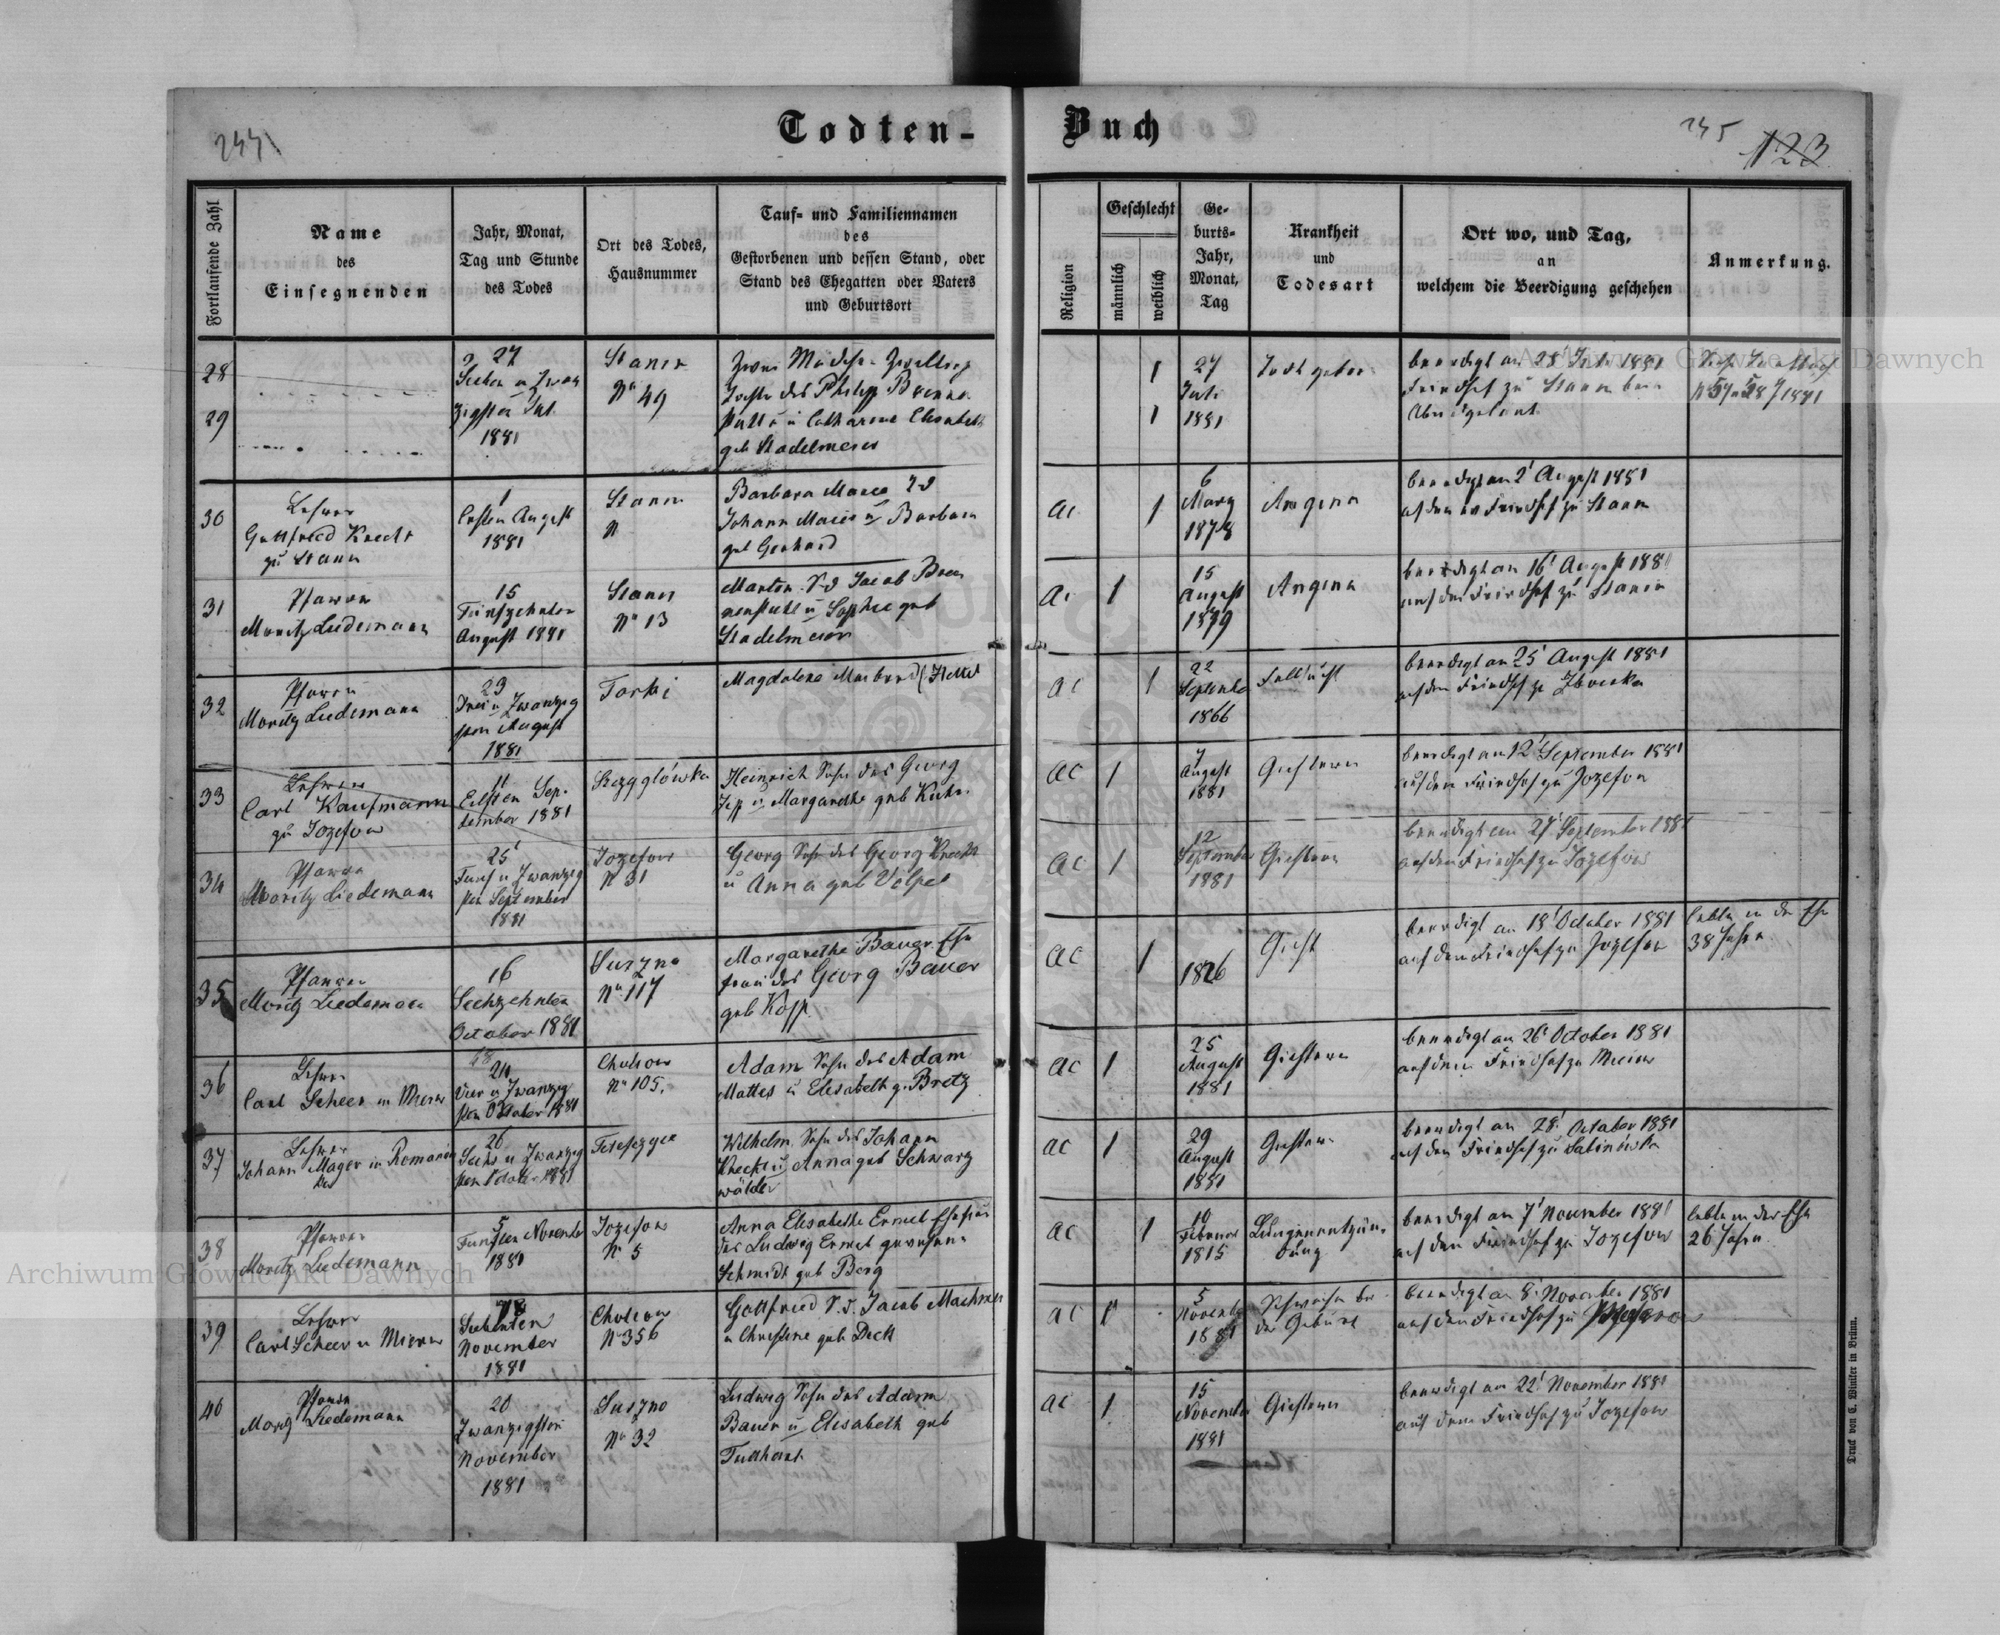 Todten-Buch
244
245
123
Fortlaufende Zahl
Name
des
Einsegnenden
Jahr, Monat,
Tag und Stunde
des Todes
Ort des Todes,
Hausnummer
Tauf- und Familiennamen
des
Gestorbenen und dessen Stand, oder
Stand des Ehegatten oder Vaters
und Geburtsort
Religion
Geschlecht
männlich
weiblich
Ge-
burts-
Jahr,
Monat,
Tag
Krankheit
und
Todesart
Ort wo, und Tag,
an
welchem die Beerdigung geschehen
Anmerkung.
28
29
27
Sieben u Zwan
zigsten Juli
1881
Stanin
No 49
Tochter des Philipp Brenn
u Catharine Elisabeth
geb Stadelmeier
1
1
27
Juli
1881
Todtgeboren
beerdigt am 28 Juli 1881
Friedhof zu Stanin
30
Lehrer
Gottfried Knecht
zu Stanin
1
Ersten August
1881
Stanin
N
Barbara Maria T d
Johann Maier u Barbara
geb Gerhard
ac
1
6
März
1878
Angina
beerdigt am 2' August 1881
auf dem Friedhof zu Stanin
31
Pfarrer
Moritz Liedemann
15
Fünfzehnten
August 1881
Stanin
No 13
Martin S. d Jacob Bren
nenstuhl u Sophie geb
Stadelmeier
ac
1
15
August
1879
Angina
beerdigt am 16' August 1881
auf dem Friedhof zu Stanin
32
Pfarrer
Moritz Liedemann
23
Drei u Zwanzig
sten August
1881
Torki
Magdalena
ac
1
22
September
1866
Fallsucht
beerdigt am 25' August 1881
auf dem Friedhof zu
33
Lehrer
Carl Kaufmann
zu Jozefow
11
Eilften Sep-
tember 1881
Heinrich Sohn des Georg
u Margarethe geb Kuhn
ac
1
7
August
1881
Gichtern
beerdigt am 12' September 1881
auf dem Friedhof zu Jozefow
34
Pfarrer
Moritz Liedemann
25
Fünf u Zwanzig
sten September
1881
Jozefow
N 31
Georg Sohn des Georg Knecht
u Anna geb Volpel
ac
1
12
September
1881
Gichtern
beerdigt am 27' September 1881
auf dem Friedhof zu Jozefow
35
Pfarrer
Moritz Liedemann
16
Sechzehnten
October 1881
Suszno
No 117
Margarethe Bauer Ehe
frau des Georg Bauer
geb Kopp
ac
1
1826
Gicht
beerdigt am 18' October 1881
auf dem Friedhof zu Jozefow
lebte in der Ehe
38 Jahre
36
Lehrer
Carl Scheer in Mierw
24
Vier u Zwanzig
sten October 1881
Cholow
No 105,
Adam Sohn des Adam
Mattes u Elisabeth g. Bretz
ac
1
25
August
1881
Gichtern
beerdigt am 26' October 1881
auf dem Friedhof zu Mierw
37
Lehrer
Johann Mager in Romanow
26
Sechs u Zwanzig
sten October 1881
Wilhelm Sohn des Johann
Knecht u Anna geb Schwarz
wälder
ac
1
29
August
1881
Gichtern
beerdigt am 28' October 1881
auf dem Friedhof zu Sabinowka
38
Pfarrer
Moritz Liedemann
5
Fünften November
1881
Jozefow
N 5
Anna Elisabethe Ermel Ehefrau
des Ludwig Ermel gewesener
Schmidt geb Berg
ac
1
10
Februar
1815
Lungenentzün-
dung
beerdigt am 7' November 1881
auf dem Friedhof zu Jozefow
lebte in der Ehe
26 Jahre
39
Lehrer
Carl Scheer in Mierow
Siebenten
November
1881
Cholow
No 356
Gottfried S. d. Jacob Machmer
u Christine geb Deck
ac
1
5
November
1881
Schwäche bei
der Geburt
beerdigt am 8' November 1881
auf dem Friedhof zu
40
Pfarrer
Moritz Liedemann
20
Zwanzigsten
November
1881
Suszno
No 32
Ludwig Sohn des Adam
Bauer u Elisabeth geb
ac
1
15
November
1881
Gichtern
beerdigt am 22' November 1881
auf dem Friedhof zu Jozefow
Druck von C. Winiker in Brünn.
Archiwum Główne Akt Dawnych
Archiwum Główne Akt Dawnych